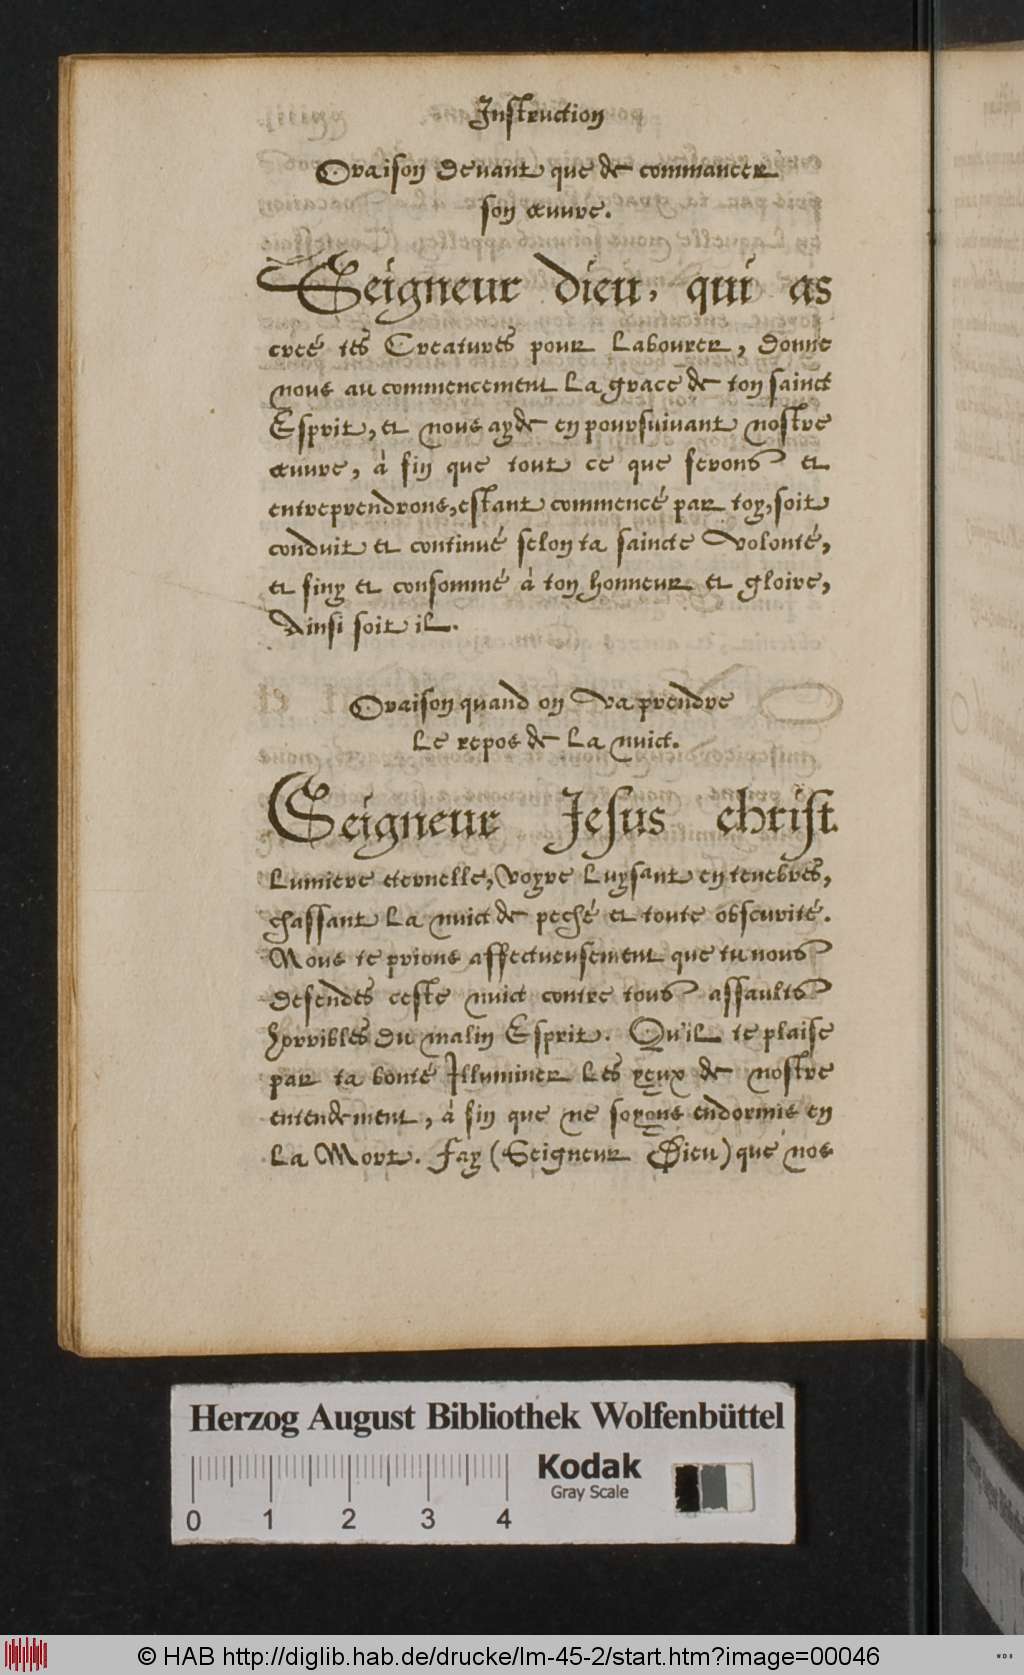 Instruction
Oraison devant que de commancer
son œuvre.
Seigneur dieu, qui as
creé tes Creatures pour labourer, donne
nous au commencement la grace de ton sainct
Esprit, et nous ayde en poursuivant nostre
œuvre, à fin que tout ce que ferons et
entreprendrons, estant commencé par toy, soit
conduit et continué selon ta saincte volonté,
et finy et consommé à ton honneur et gloire,
Ainsi soit il.
Oraison quand on va prendre
le repos de la nuict.
Seigneur Jesus christ
lumiere eternelle, voyre luysant en tenebres,
chassant la nuict de peché et toute obscurité.
Nous te prions affectueusement que tu nous
defendes ceste nuict contre tous assaults
horribles du malin Esprit. Qu'il te plaise
par ta bonté Illuminer les yeux de nostre
entendement, à fin que ne soyons endormis en
la Mort. Fay (Seigneur Dieu) que nos
Herzog August Bibliothek Wolfenbüttel
Kodak
Gray Scale
0 1 2 3 4
© HAB http://diglib.hab.de/drucke/lm-45-2/start.htm?image=00046